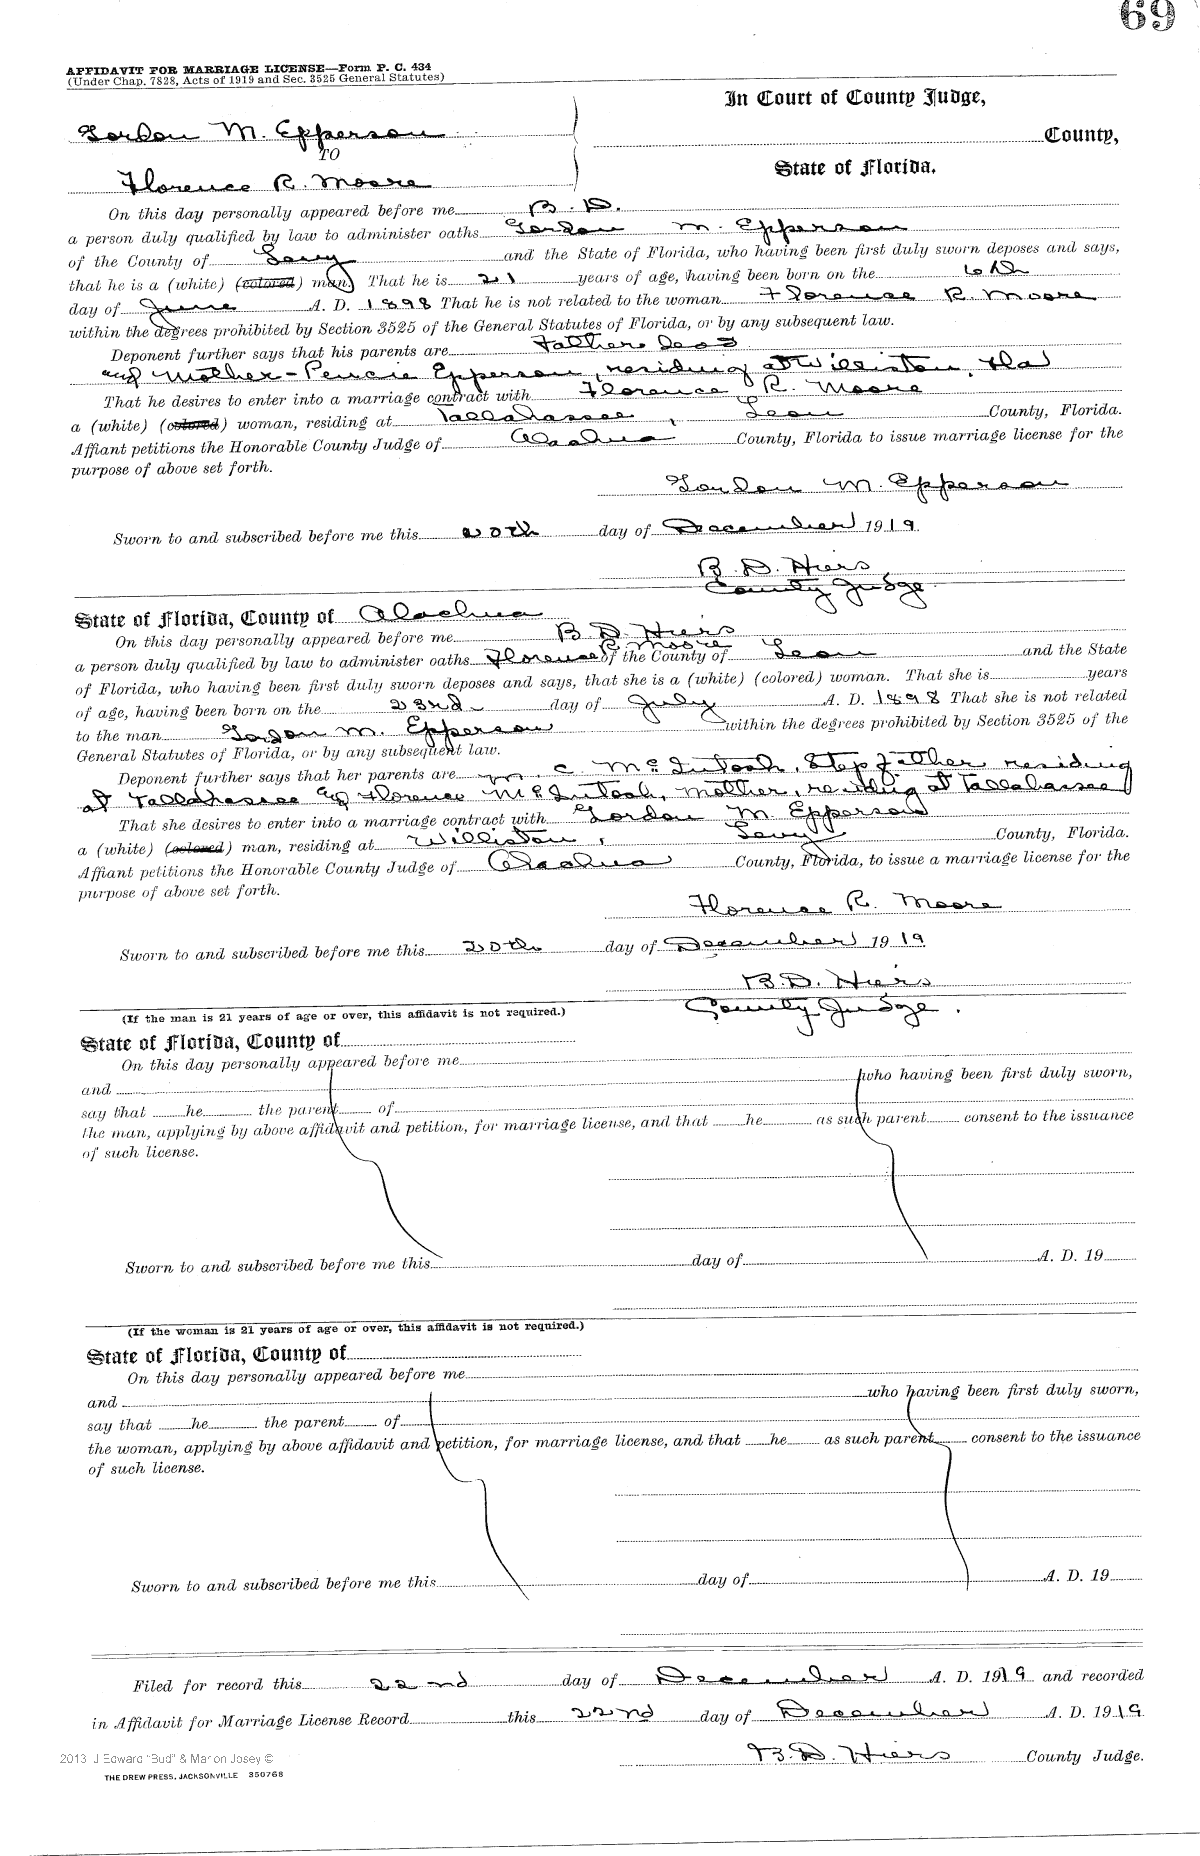 69
AFFIDAVIT FOR MARRIAGE LICENSE—Form P. C. 434
(Under Chap. 7828, Acts of 1919 and Sec. 3525 General Statutes)
In Court of County Judge,
Gordon M. Epperson
County,
TO
State of Florida.
Florence R. Moore
On this day personally appeared before me B. D.
a person duly qualified by law to administer oaths Gordon M. Epperson
of the County of Levy and the State of Florida, who having been first duly sworn deposes and says,
that he is a (white) (colored) man, That he is 21 years of age, having been born on the 6th
day of June A. D. 1898 That he is not related to the woman Florence R. Moore
within the degrees prohibited by Section 3525 of the General Statutes of Florida, or by any subsequent law.
Deponent further says that his parents are Father dead
and Mother - Epperson, residing at Williston, Fla
That he desires to enter into a marriage contract with Florence R. Moore
a (white) (colored) woman, residing at Tallahassee, Leon County, Florida.
Affiant petitions the Honorable County Judge of Alachua County, Florida to issue marriage license for the
purpose of above set forth.
Gordon M. Epperson
Sworn to and subscribed before me this 20th day of December 1919.
B. D. Hiers
County Judge.
State of Florida, County of Alachua
On this day personally appeared before me B D Hiers
a person duly qualified by law to administer oaths Florence R. Moore of the County of Leon and the State
of Florida, who having been first duly sworn deposes and says, that she is a (white) (colored) woman. That she is years
of age, having been born on the 23rd day of July A. D. 1898 That she is not related
to the man Gordon M. Epperson within the degrees prohibited by Section 3525 of the
General Statutes of Florida, or by any subsequent law.
Deponent further says that her parents are M. C McIntosh, Step father residing
at Tallahassee and Florence McIntosh, mother, residing at Tallahassee
That she desires to enter into a marriage contract with Gordon M. Epperson
a (white) (colored) man, residing at Williston, Levy County, Florida.
Affiant petitions the Honorable County Judge of Alachua County, Florida, to issue a marriage license for the
purpose of above set forth.
Florence R. Moore
Sworn to and subscribed before me this 20th day of December 1919
B. D. Hiers
County Judge.
(If the man is 21 years of age or over, this affidavit is not required.)
State of Florida, County of
On this day personally appeared before me
and who having been first duly sworn,
say that he the parent of
the man, applying by above affidavit and petition, for marriage license, and that he as such parent consent to the issuance
of such license.
Sworn to and subscribed before me this day of A. D. 19
(If the woman is 21 years of age or over, this affidavit is not required.)
State of Florida, County of
On this day personally appeared before me
and who having been first duly sworn,
say that he the parent of
the woman, applying by above affidavit and petition, for marriage license, and that he as such parent consent to the issuance
of such license.
Sworn to and subscribed before me this day of A. D. 19
Filed for record this 22nd day of December A. D. 1919 and recorded
in Affidavit for Marriage License Record this 22nd day of December A. D. 1919
B. D. Hiers County Judge.
2013 J Edward "Bud" & Marion Josey ©
THE DREW PRESS, JACKSONVILLE 350768